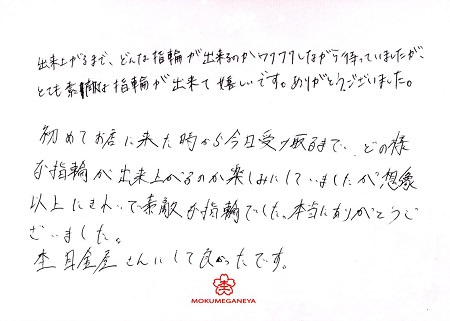 出来上がるまで、どんな指輪が出来るのかワクワクしながら待っていましたが、
とても素敵な指輪が出来て嬉しいです。ありがとうございました。
初めてお店に来た時から今日受け取るまで、どの様
な指輪が出来上がるのか楽しみにしていましたが想像
以上にきれいで素敵な指輪でした。本当にありがとうご
ざいました。
杢目金屋さんにして良かったです。
MOKUMEGANEYA